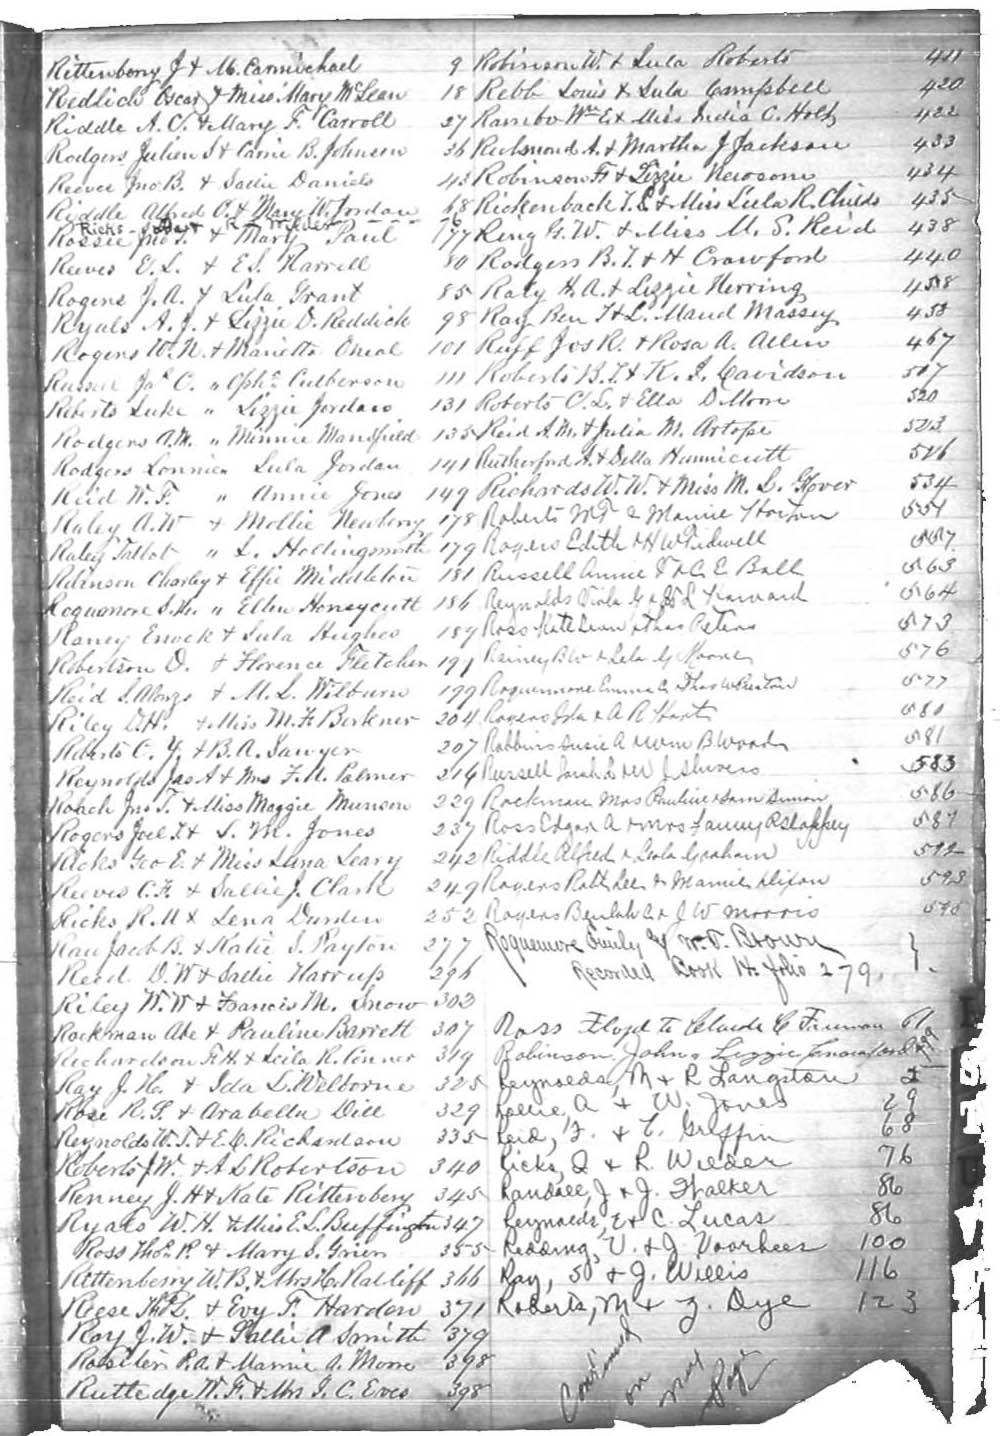 Rittenberry J & M. Carmichael 9
Redlick Oscar & Miss Mary McLean 18
Riddle A. O. & Mary F. Carroll 27
Rodgers Julien S & Carrie B. Johnson 36
Reeves Jno. B. & Sallie Daniels 43
Riddle Alfred O. & Mary W. Jordan 68
Ricks & R Wilder 76
Rossie Jno T. & Mary Paul 177
Reeves E. L. & E. S. Harrell 80
Rogers J. A. & Lula Grant 85
Ryals A. J. & Lizzie D. Reddick 98
Rogers W. N. & Marietta Oneal 101
Russell Jas C. " Culberson 111
Roberts Luke " Lizzie Jordan 131
Rodgers A. M. " Minnie Mansfield 135
Rodgers Lonnie " Lula Jordan 141
Reid W. F. " Annie Jones 149
Raley A. W & Mollie Newberry 178
Raley Talbot " L. Hollingsworth 179
Robinson Charley & Effie Middleton 181
Roquemore S. M. " Ellen Honeycutt 186
Raney Enock & Lula Hughes 189
Robertson D. & Florence Fletcher 191
Reid S. Alonzo & M. L. Wilburn 199
Riley D. H. & Miss M. F. Berkner 204
Roberts C. Y. & B. A. Sawyer 207
Reynolds Jas A & Mrs F. M. Palmer 216
Roach Jno. T. & Miss Maggie Munson 229
Rogers Joel T. & S. M. Jones 237
Ricks Geo E. & Miss Luna Leary 242
Reeves C. F. & Sallie J. Clark 249
Ricks R. M & Lena Durden 252
Rau Jacob B. & Katie S. Payton 277
Reed D. W & Sallie Harrup 296
Riley W. W & Francis M. Snow 302
Rockman Abe & Pauline Barrett 307
Richardson F. H. & Leila R. 319
Ray J. H. & Ida L. Welborne 325
Rose R. S. & Arabella Dill 329
Reynolds W. T. & E. O. Richardson 335
Roberts J. W. & A L Robertson 340
Renney J. H & Kate Rittenberry 345
Ryals W. H. & Miss E. S. Buffington 347
Ross Thos. R & Mary S. Grier 355
Rittenberry W. B. & Mrs H. Ratliff 366
Reese Thos L. & Evy T. Hardon 371
Roy J. W. & Sallie A Smith 379
P. A. & Mamie A. Moore 398
Rutledge W. F. & Mrs J. C. Eves 398
Robinson W. & Lula Roberts 411
Robb Louis & Lula Campbell 420
Rambo Wm E & Miss India C. Holt 422
Richmond A. & Martha J Jackson 433
Robinson F. & Lizzie Newsom 434
Rickenback T. E & Miss Lula R. Childs 435
Reng G. W. & Miss M. S. Reid 438
Rodgers B. T. & H Crawford 440
Raty H. A. & Lizzie Herring 458
Ray Ben T & L. Maud Massey 458
Ruff Jos R. & Rosa A. Allen 467
Roberts B. T. & K. I. Davidson 507
Roberts C. L. & Ella D Moore 520
Reid A. M. & Julia M. Artope 523
Rutherford A. & Della Hunnicutt 526
Richards W. W. & Miss M. L. Glover 534
Roberts & Mamie Horton 551
Rogers Edith & H W Tidwell 557
Russell Annie T & C. C Ball 563
Reynolds Viola G & L Harvard 564
Ross Kate Dean & Thos Peters 573
Rainey B W & Lela G Moore 576
Roquemore Emma C & Thos W Preston 577
Rogers Ida & A R Hart 580
Robbins Susie A & Wm B Woods 581
Russell Sarah L & W J Shivers 583
Rockman Mrs Pauline & Sam Simon 586
Ross Edgar A & Mrs Fanny P Slappey 587
Riddle Alfred & Lola Graham 592
Rogers Robt Lee & Mamie Dixon 593
Rogers Beulah C & J W Morris 595
Roquemore Emily & W. D. Brown
Recorded Book H. folio 279.
Ross Floyd to Claude C Freeman 61
Robinson John & Lizzie Crawford
Reynolds, M & R Langston 2
A & W. Jones 29
Reid, F. & C. Griffin 68
Ricks, D & R. Wilder 76
Randall, J & J. Walker 86
Reynolds, E & C. Lucas 86
Redding, U. & J. Voorhees 100
Ray, & J. Willis 116
Roberts, M & Z. Dye 123
Continued
on
Page